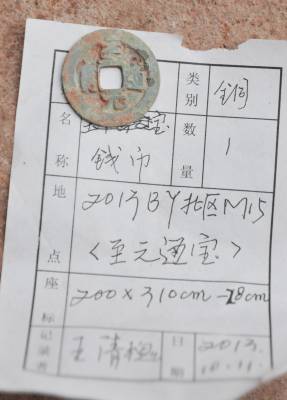 类别 铜
名称 钱币 数量 1
地点 2013BY北区M15
<至元通宝>
座标 200×310cm-78cm
记录者 王清 日期 2013.
10.11.